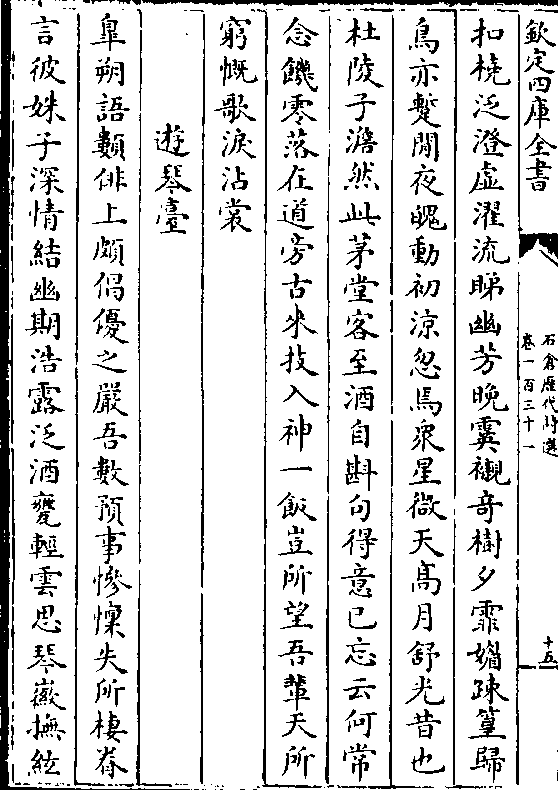 欽定四庫全書
石倉歷代詩選
卷一百三十一
十五
扣橈泛澄虛濯流睇幽芳晚霙襯奇樹夕霏媚疎篁歸
鳥亦蹔閒夜魄動初涼忽焉衆星微天髙月舒光昔也
杜陵子澹然此茅堂客至酒自斟句得意已忘云何常
念饑零落在道旁古來技入神一飯豈所望吾軰天所
窮慨歌淚沾裳
遊琴臺
臯朔語纇俳上頗倡優之嚴吾數預事慘懍失所棲眷
言彼姝子深情結幽期浩露泛酒甕輕雲思琴嶶撫絃